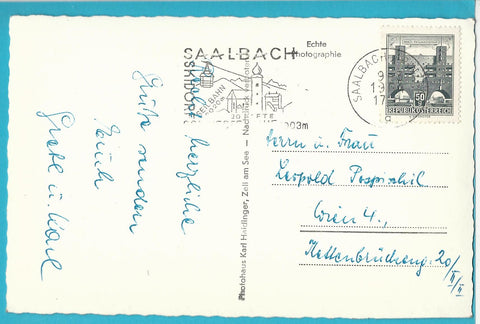 Recht herzliche
Grüße senden
Euch
Gretl u. Karl
SAALBACH
SKIDORF
SEILBAHN
LIFTE
1003m
Echte
Photographie
Photohaus Karl Haidinger, Zell am See — Nachdruck verboten
SAALBACH
9
19
17
50
REPUBLIK ÖSTERREICH
Herrn u. Frau
Leopold Pospischil
Wien 4.,
Kettenbrückeng. 20/
II/II